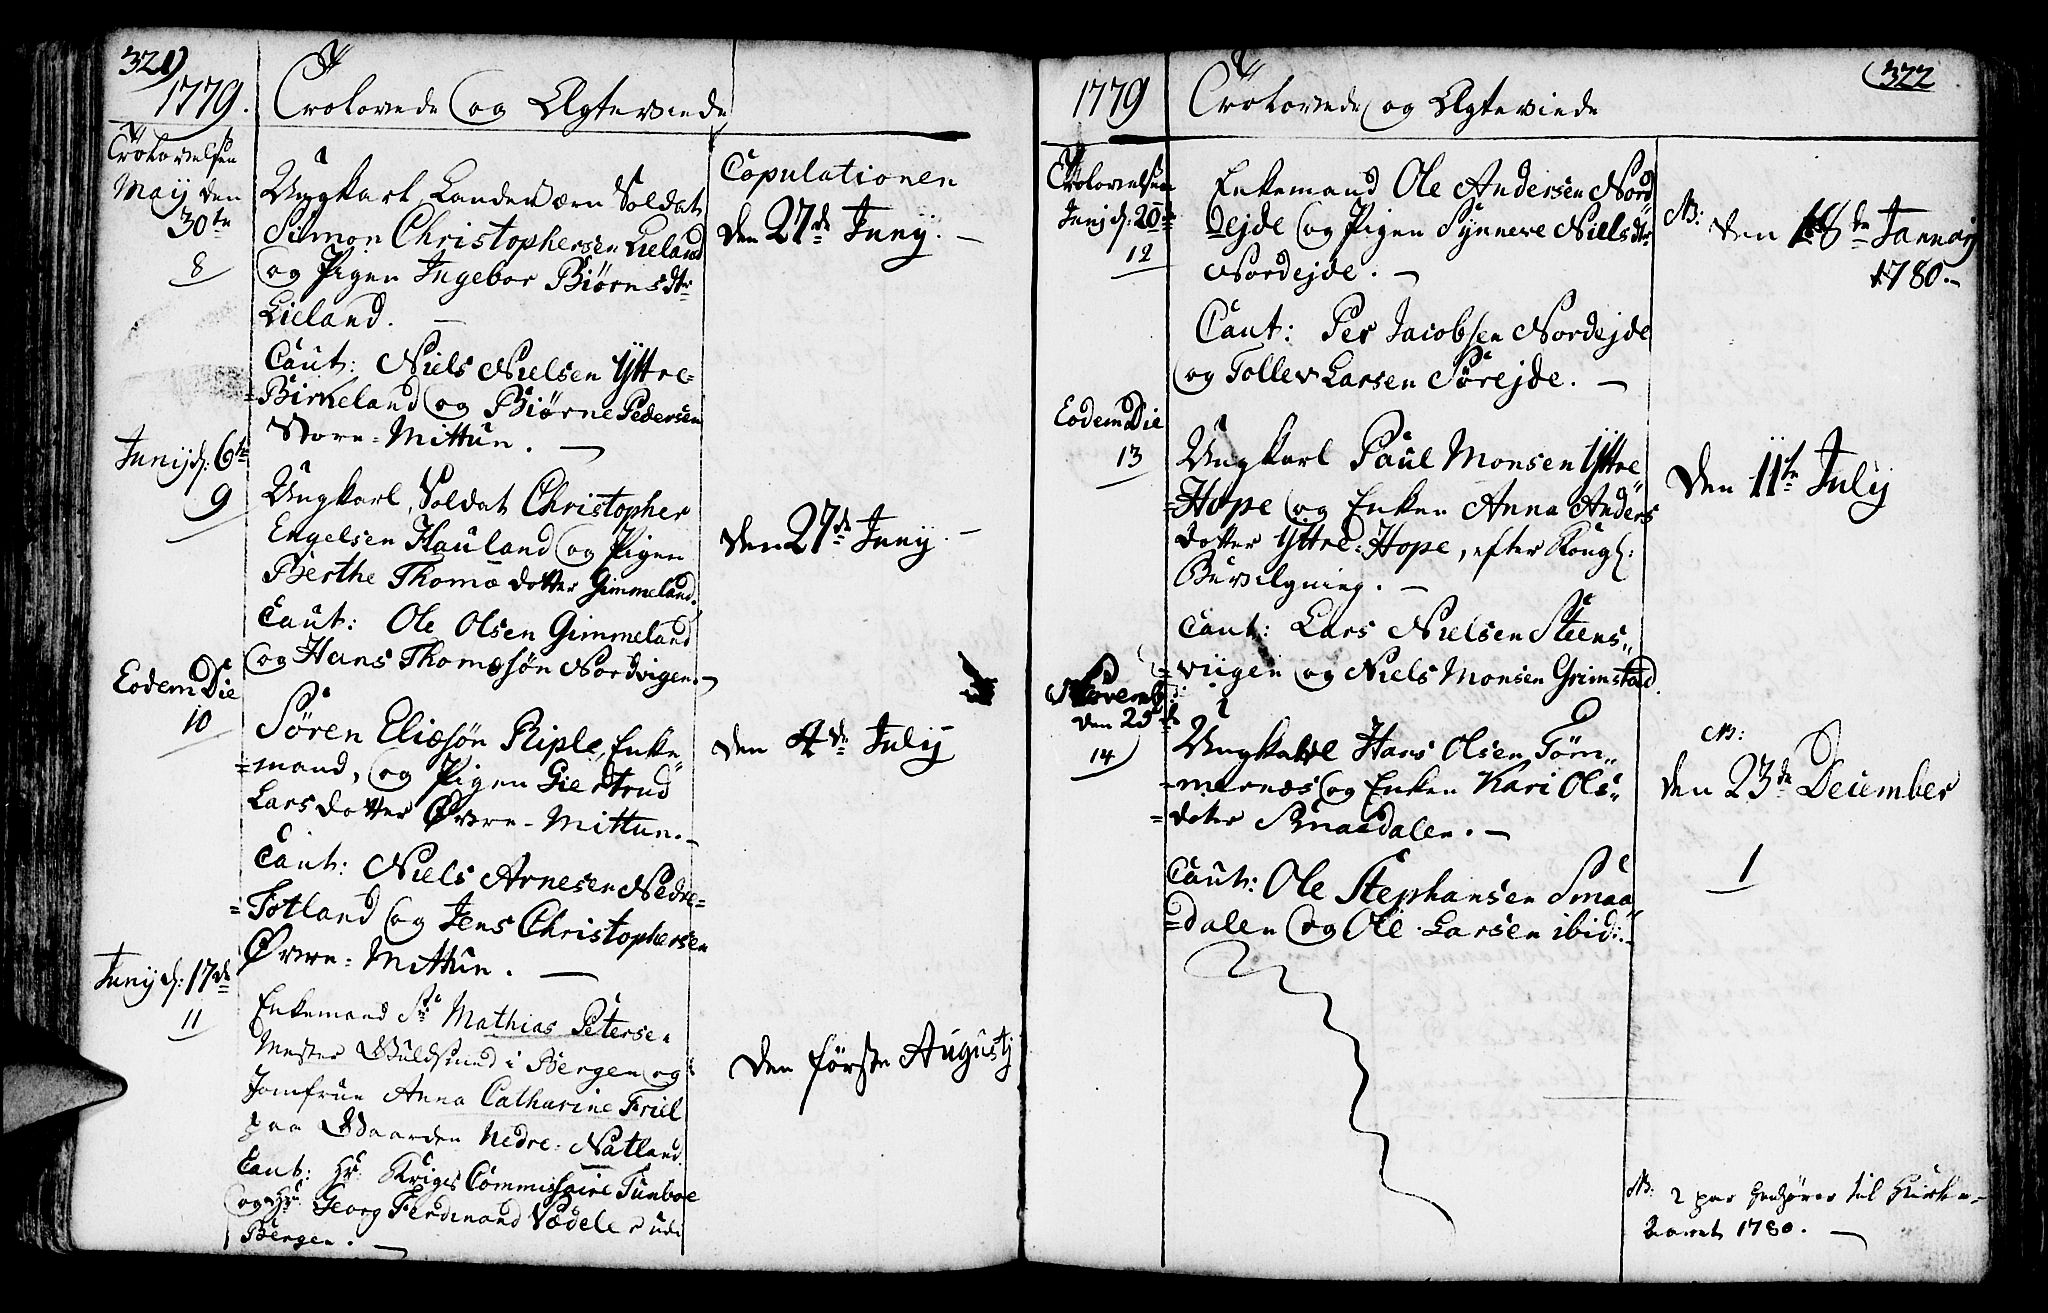 321)
1779. Trolovede og Ægteviede
Trolovelsen
Maij den
30te
8
Ungkarl Landeværn Soldat
Simon Christophersen Lieland
og Pigen Ingebor Biørnsdtr
Lieland. —
Caut: Niels Nielsen Yttre-
=Birkeland og Biørne Pedersen
Store=Mittun. —
Copulationen
den 27de Junij. —
Junij d: 6te
9
Ungkarl, Soldat Christopher
Engelsen Hauland og Pigen
Berthe Thomædotter Gimmeland.
Caut: Ole Olsen Gimmeland
og Hans Thomesøn Nordvigen. —
den 27de Junij. —
Eodem Die
10
Søren Eliæsøn Riple, Enke-
=mand, og Pigen Giertrud
Larsdotter Øvre-Mittun. —
Caut: Niels Arnesen Nedre=
=Totland og Jens Christophersen
Øvre=Mittun. —
den 4de Julij
Junij d: 17de
11
Enkemand Sr Mathias Petersen
Mester Guldsmed i Bergen og
Jomfrue Anna Catharine Friel
paa Gaarden Nedre-Natland.
Caut: Hr. Krigs Commissaire Tunboe
og Hr. Georg Ferdinand Vedeler udi
Bergen. —
den første Augustij
1779 Trolovede og Ægteviede
322
Trolovelsen
Junij d: 20de
12
Enkemand Ole Andersen Nord-
=ejde og Pigen Synneve Nielsdtr
Nordejde. —
Caut: Per Jacobsen Nordejde
og Tollev Larsen Sørejde. —
NB: den 18de Januarij
1780. —
Eodem Die
13
Ungkarl Paul Monsen Yttre
=Hope og Enken Anna Anders
dotter Yttre=Hope, efter Kongl:
Bevilgning. —
Caut: Lars Nielsen Steens-
=viigen og Niels Monsen Grimstad.
den 11te Julij
Novemb:
den 25de
14
Ungkarl Hans Olsen Tøm-
-mernæs og Enken Kari Ols-
=doter Smaadalen. —
Caut: Ole Stephansen Smaa
=dalen og Ole Larsen ibid: —
NB:
den 23de December
1
NB: 2 par henhører til Kirke-
Aaret 1780. —